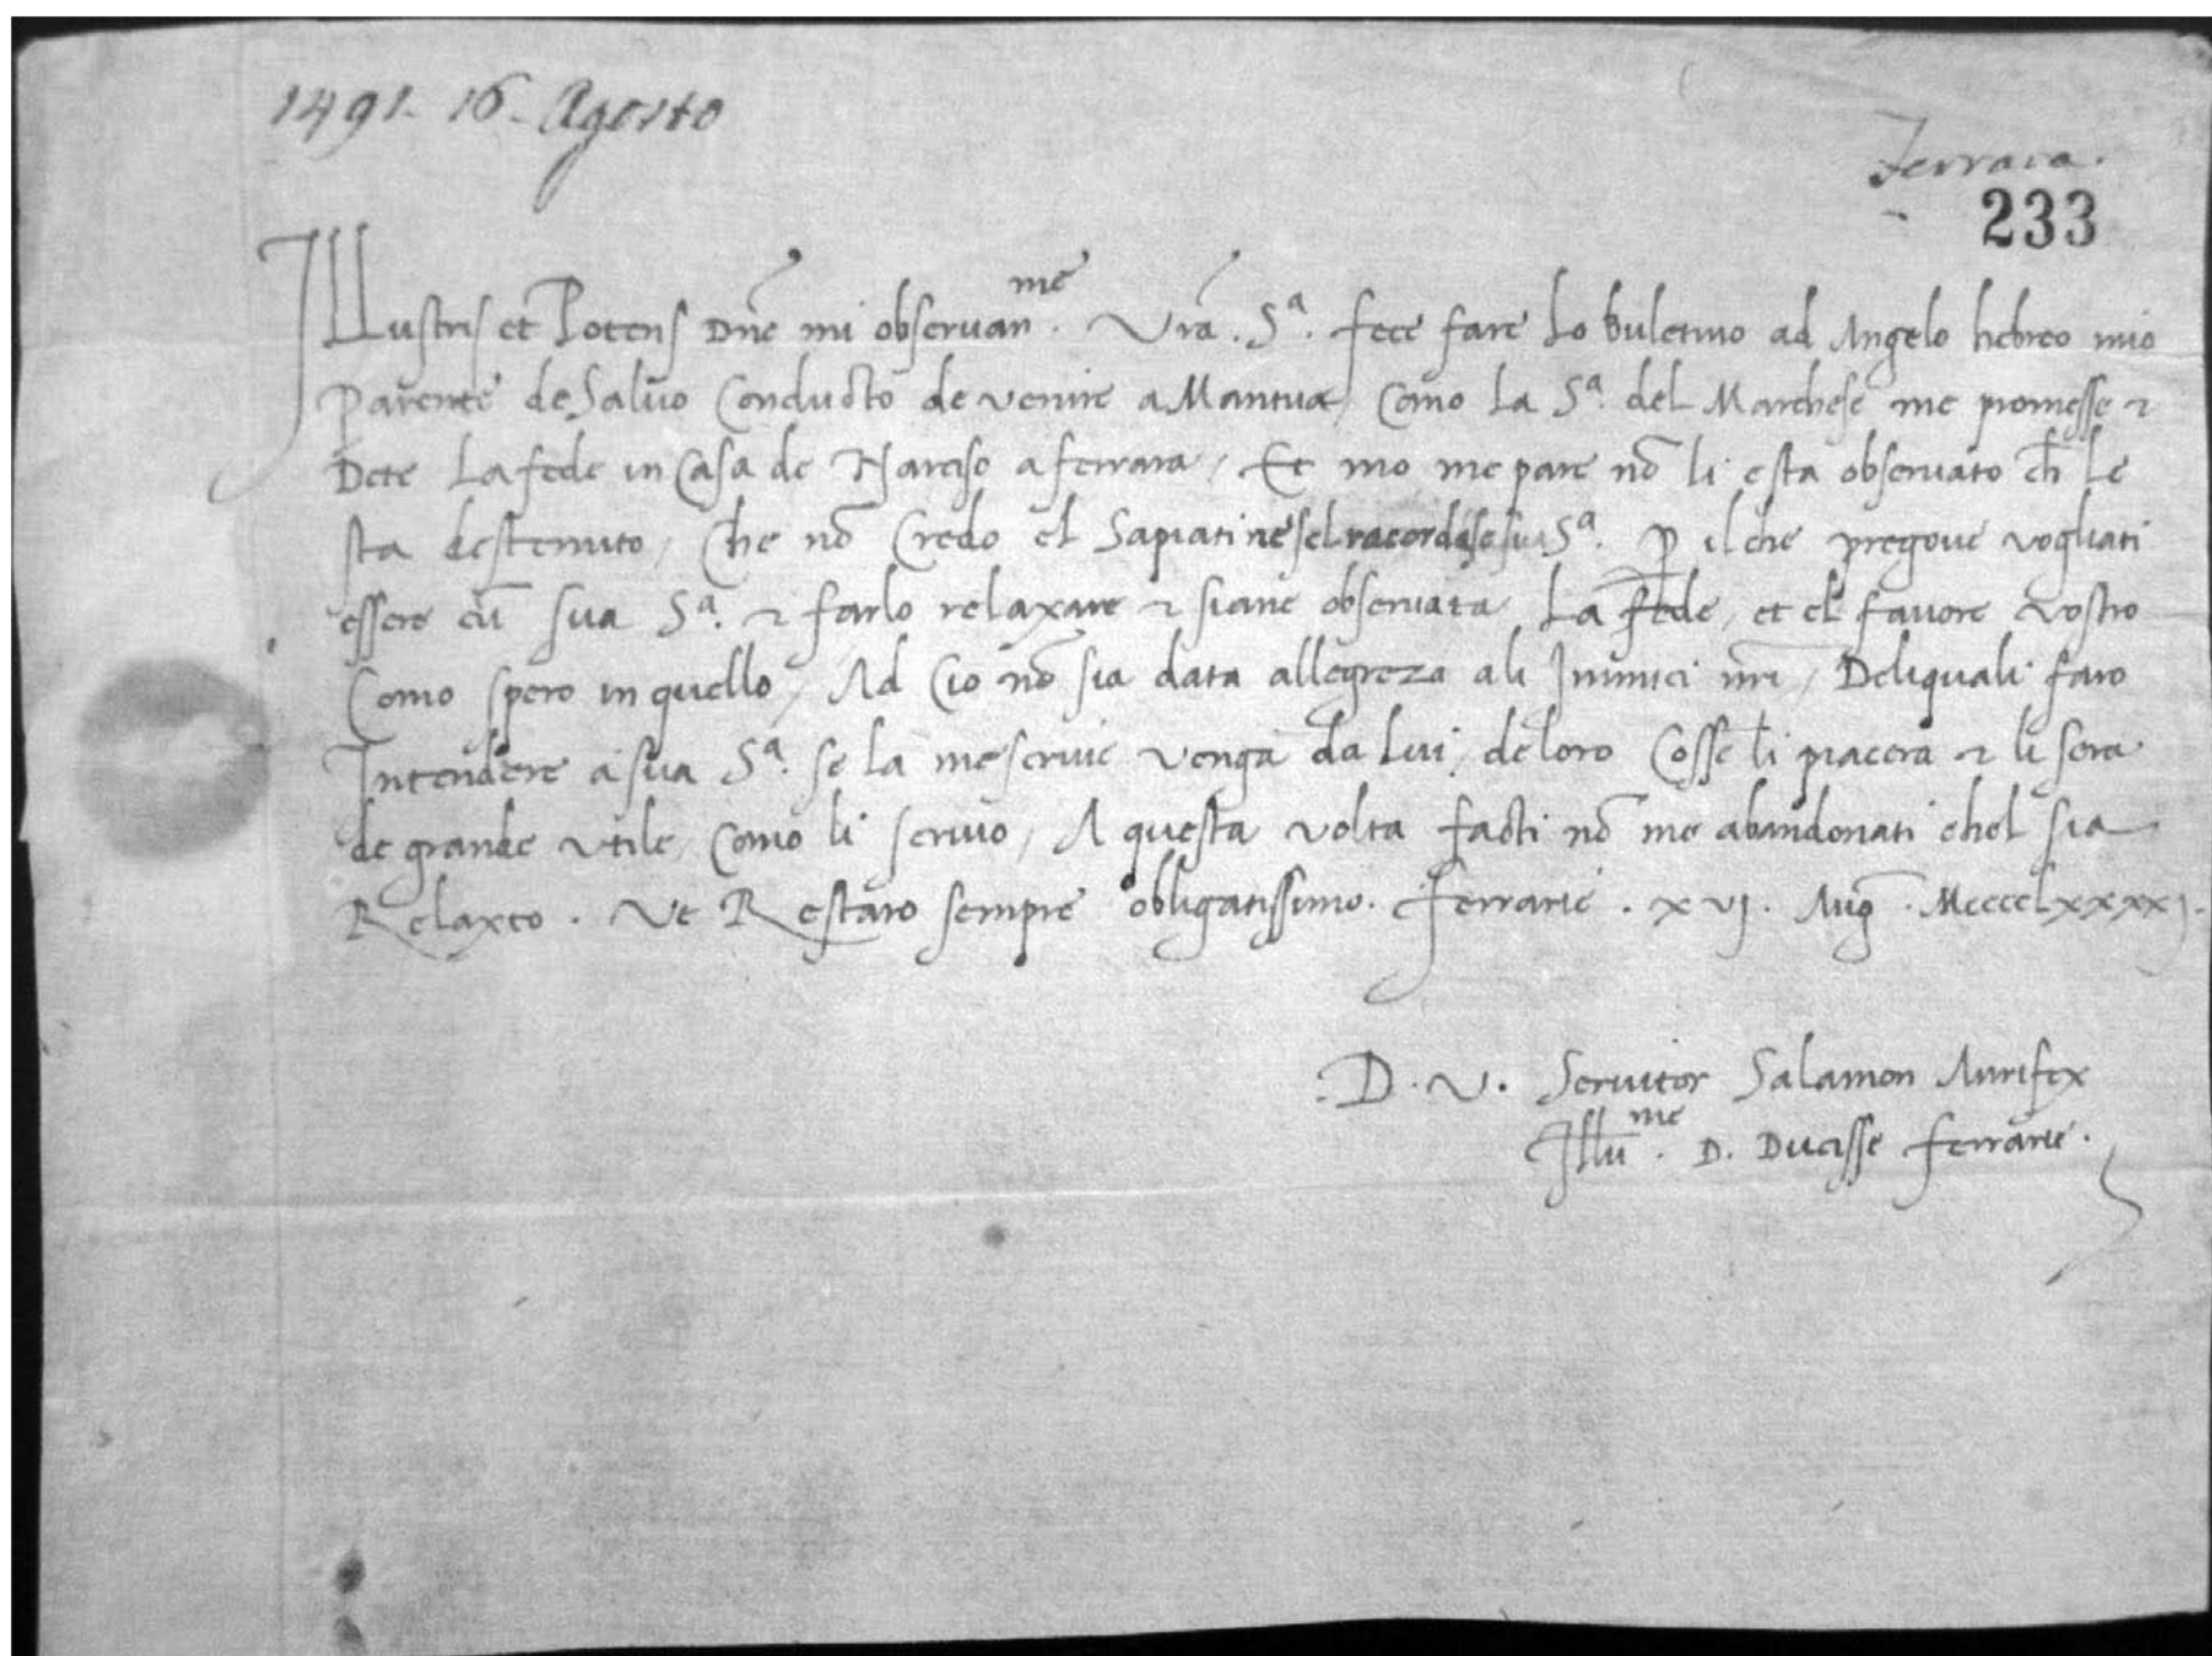 1491. 16. Agosto
Ferrara.
233
Illustris et Potens Dne mi observan.me Vra. Sa. fece fare Lo buletino ad Angelo hebreo mio
Parente de Salvo Conducto de venire a Mantua, Como La Sa. del Marchese me promesse &
Dete La fede in Casa de Narciso a ferrara, Et mo me pare nō li esta observato ch Le
sta destenuto, Che nō Credo el Sapiati ne sel racordase sua Sa. P il che pregove vogliati
essere cū sua Sa. & farlo relaxare & siane observata La fede, et el favore vostro
Como spero in quello, Ad Cio nō sia data allegreza ali Inimici mri, Deli quali faro
Intendere a sua Sa. se La me scrive venga da Lui, de loro Cosse li piacera & li sera
de grande utile, Como li scrivo, A questa volta facti nō me abandonati chel sia
Relaxto. Ve Restaro sempre obligatissimo. Ferrarie. xvj. Aug. Mcccclxxxxj.
D. V. Servitor Salamon Aurifex
Illu.me D. Ducisse ferrarie.